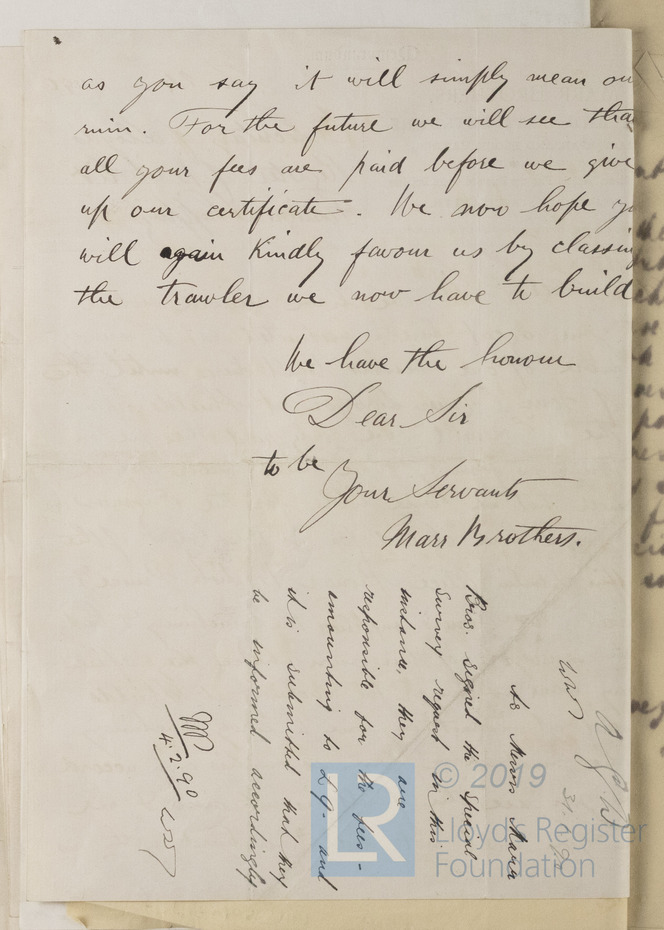 as you say it will simply mean ou
ruin. For the future we will see tha
all your fees are paid before we give
up our certificate. We now hope y
will again Kindly favour us by classin
the trawler we now have to build
We have the honour
Dear Sir
to be
Your Servants
Marr Brothers.
As Messrs Marr
Bros. signed the Special
Survey request in this
instance, they are
responsible for the fees -
amounting to £9- and
it is submitted that they
be informed accordingly
4.2.90
© 2019
LR
Lloyd's Register
Foundation